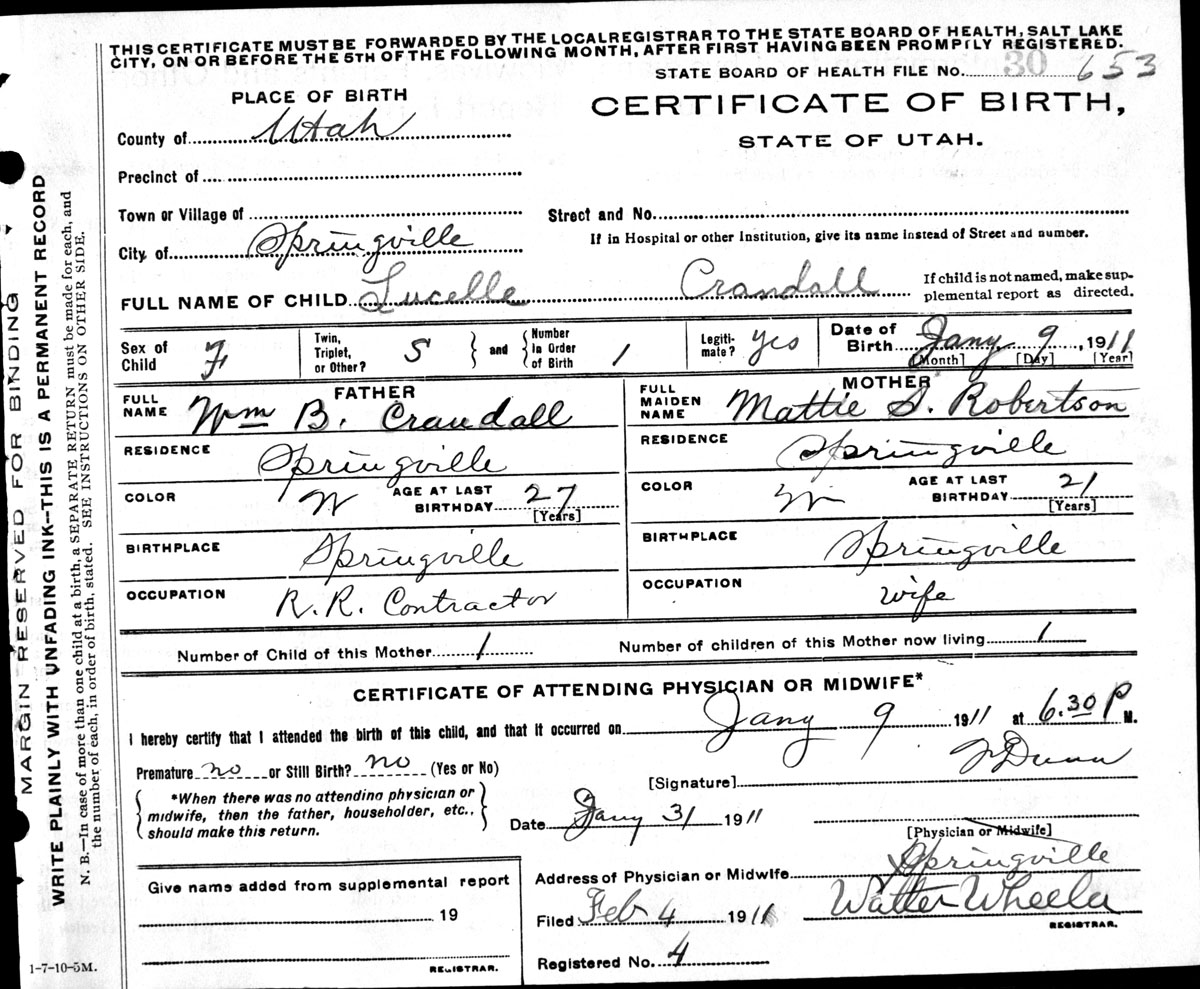 THIS CERTIFICATE MUST BE FORWARDED BY THE LOCAL REGISTRAR TO THE STATE BOARD OF HEALTH, SALT LAKE
CITY, ON OR BEFORE THE 5TH OF THE FOLLOWING MONTH, AFTER FIRST HAVING BEEN PROMPTLY REGISTERED.
STATE BOARD OF HEALTH FILE No. 30 653
PLACE OF BIRTH
CERTIFICATE OF BIRTH,
STATE OF UTAH.
County of Utah
Precinct of
Town or Village of
Street and No.
City of Springville
If in Hospital or other Institution, give its name instead of Street and number.
FULL NAME OF CHILD Lucelle Crandall
If child is not named, make sup-
plemental report as directed.
Sex of Child F
Twin, Triplet, or Other? S
and
Number in Order of Birth 1
Legiti-mate? Yes
Date of Birth Jany 9, 1911
[Month] [Day] [Year]
FATHER
FULL NAME Wm B. Crandall
RESIDENCE Springville
COLOR W AGE AT LAST BIRTHDAY 27
[Years]
BIRTHPLACE Springville
OCCUPATION R.R. Contractor
MOTHER
FULL MAIDEN NAME Mattie S. Robertson
RESIDENCE Springville
COLOR W AGE AT LAST BIRTHDAY 21
[Years]
BIRTHPLACE Springville
OCCUPATION wife
Number of Child of this Mother 1
Number of children of this Mother now living 1
CERTIFICATE OF ATTENDING PHYSICIAN OR MIDWIFE*
I hereby certify that I attended the birth of this child, and that it occurred on Jany 9 1911 at 6.30 P M.
Premature no or Still Birth? no (Yes or No)
[Signature] Dunn
*When there was no attending physician or
midwife, then the father, householder, etc.,
should make this return.
Date Jany 31 1911
[Physician or Midwife]
Address of Physician or Midwife Springville
Give name added from supplemental report
19
REGISTRAR.
Filed Feb 4 1911 Walter Wheeler
REGISTRAR.
Registered No. 4
1-7-10-5M.
MARGIN RESERVED FOR BINDING
WRITE PLAINLY WITH UNFADING INK—THIS IS A PERMANENT RECORD
N. B.—In case of more than one child at a birth, a SEPARATE RETURN must be made for each, and
the number of each, in order of birth, stated. SEE INSTRUCTIONS ON OTHER SIDE.